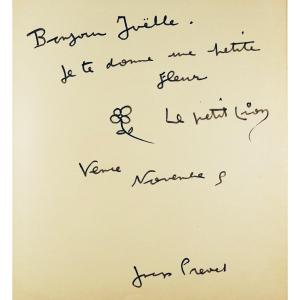 Bonjour Joëlle.
je te donne une petite
fleur
Le petit Lion
Vence Novembre